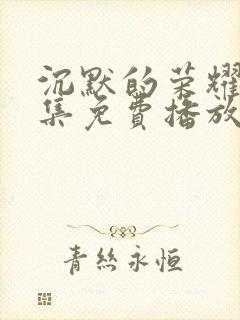 沉默的荣耀
集免費播放
青絲永恒